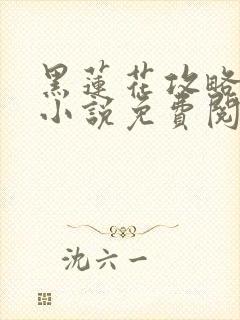 黑蓮花攻略
小說免費閱
沈六一